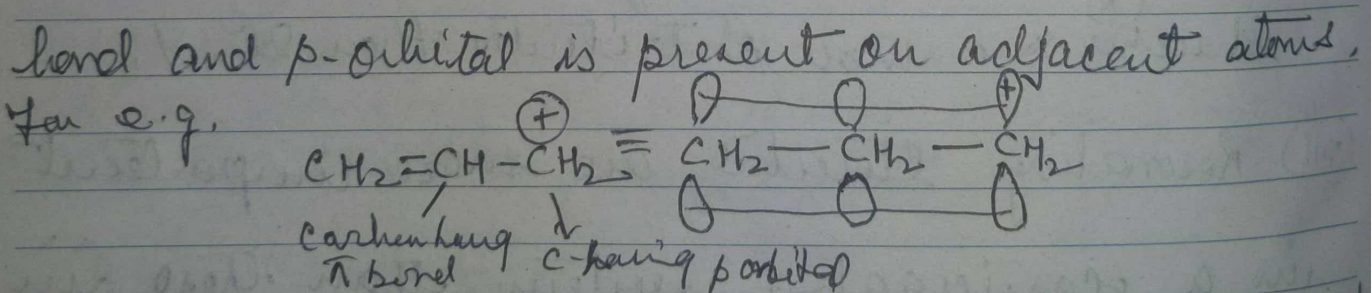 bond and p-orbital is present on adjacent atoms.
For e.g.
CH2=CH-CH2 ≡ CH2—CH2—CH2
⊕ +
carbon having C-having p orbital
π bond